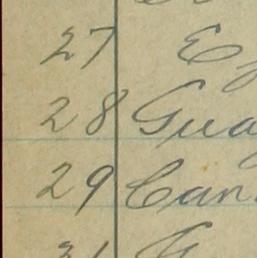 27 Eg
28 Gua
29 Can
31